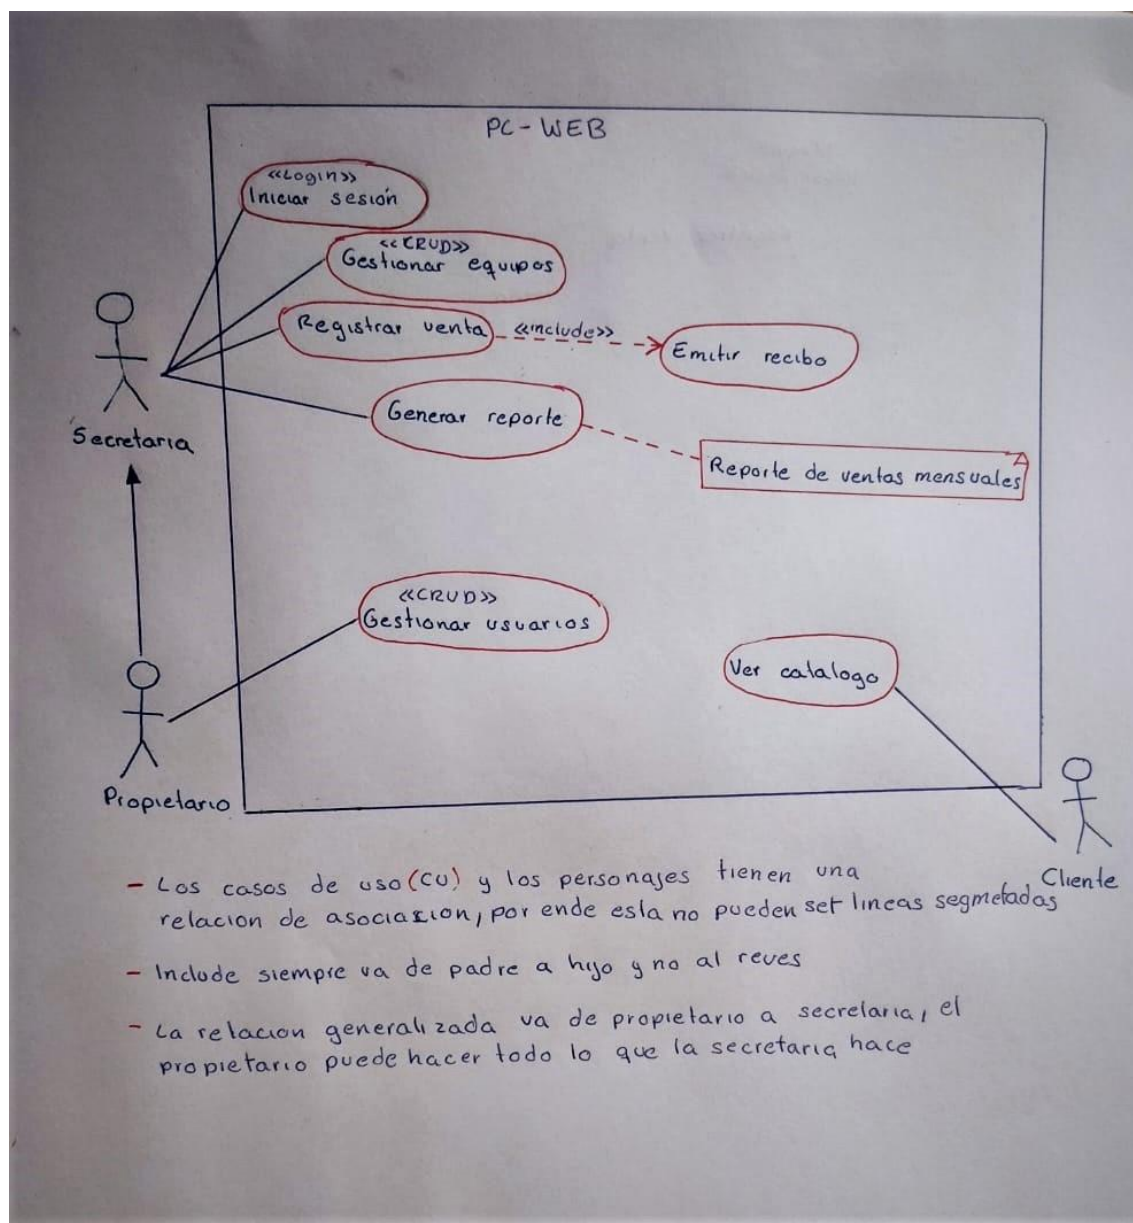 PC-WEB
<<Login>>
Iniciar sesión
<<CRUD>>
Gestionar equipos
Registrar venta
<<include>>
Emitir recibo
Generar reporte
Secretaria
Reporte de ventas mensuales
<<CRUD>>
Gestionar usuarios
Ver catalogo
Propietario
Cliente
- Los casos de uso (CU) y los personajes tienen una
relacion de asociasion, por ende esta no pueden ser lineas segmetadas
- Include siempre va de padre a hijo y no al reves
- La relacion generalizada va de propietario a secretaria, el
propietario puede hacer todo lo que la secretaria hace